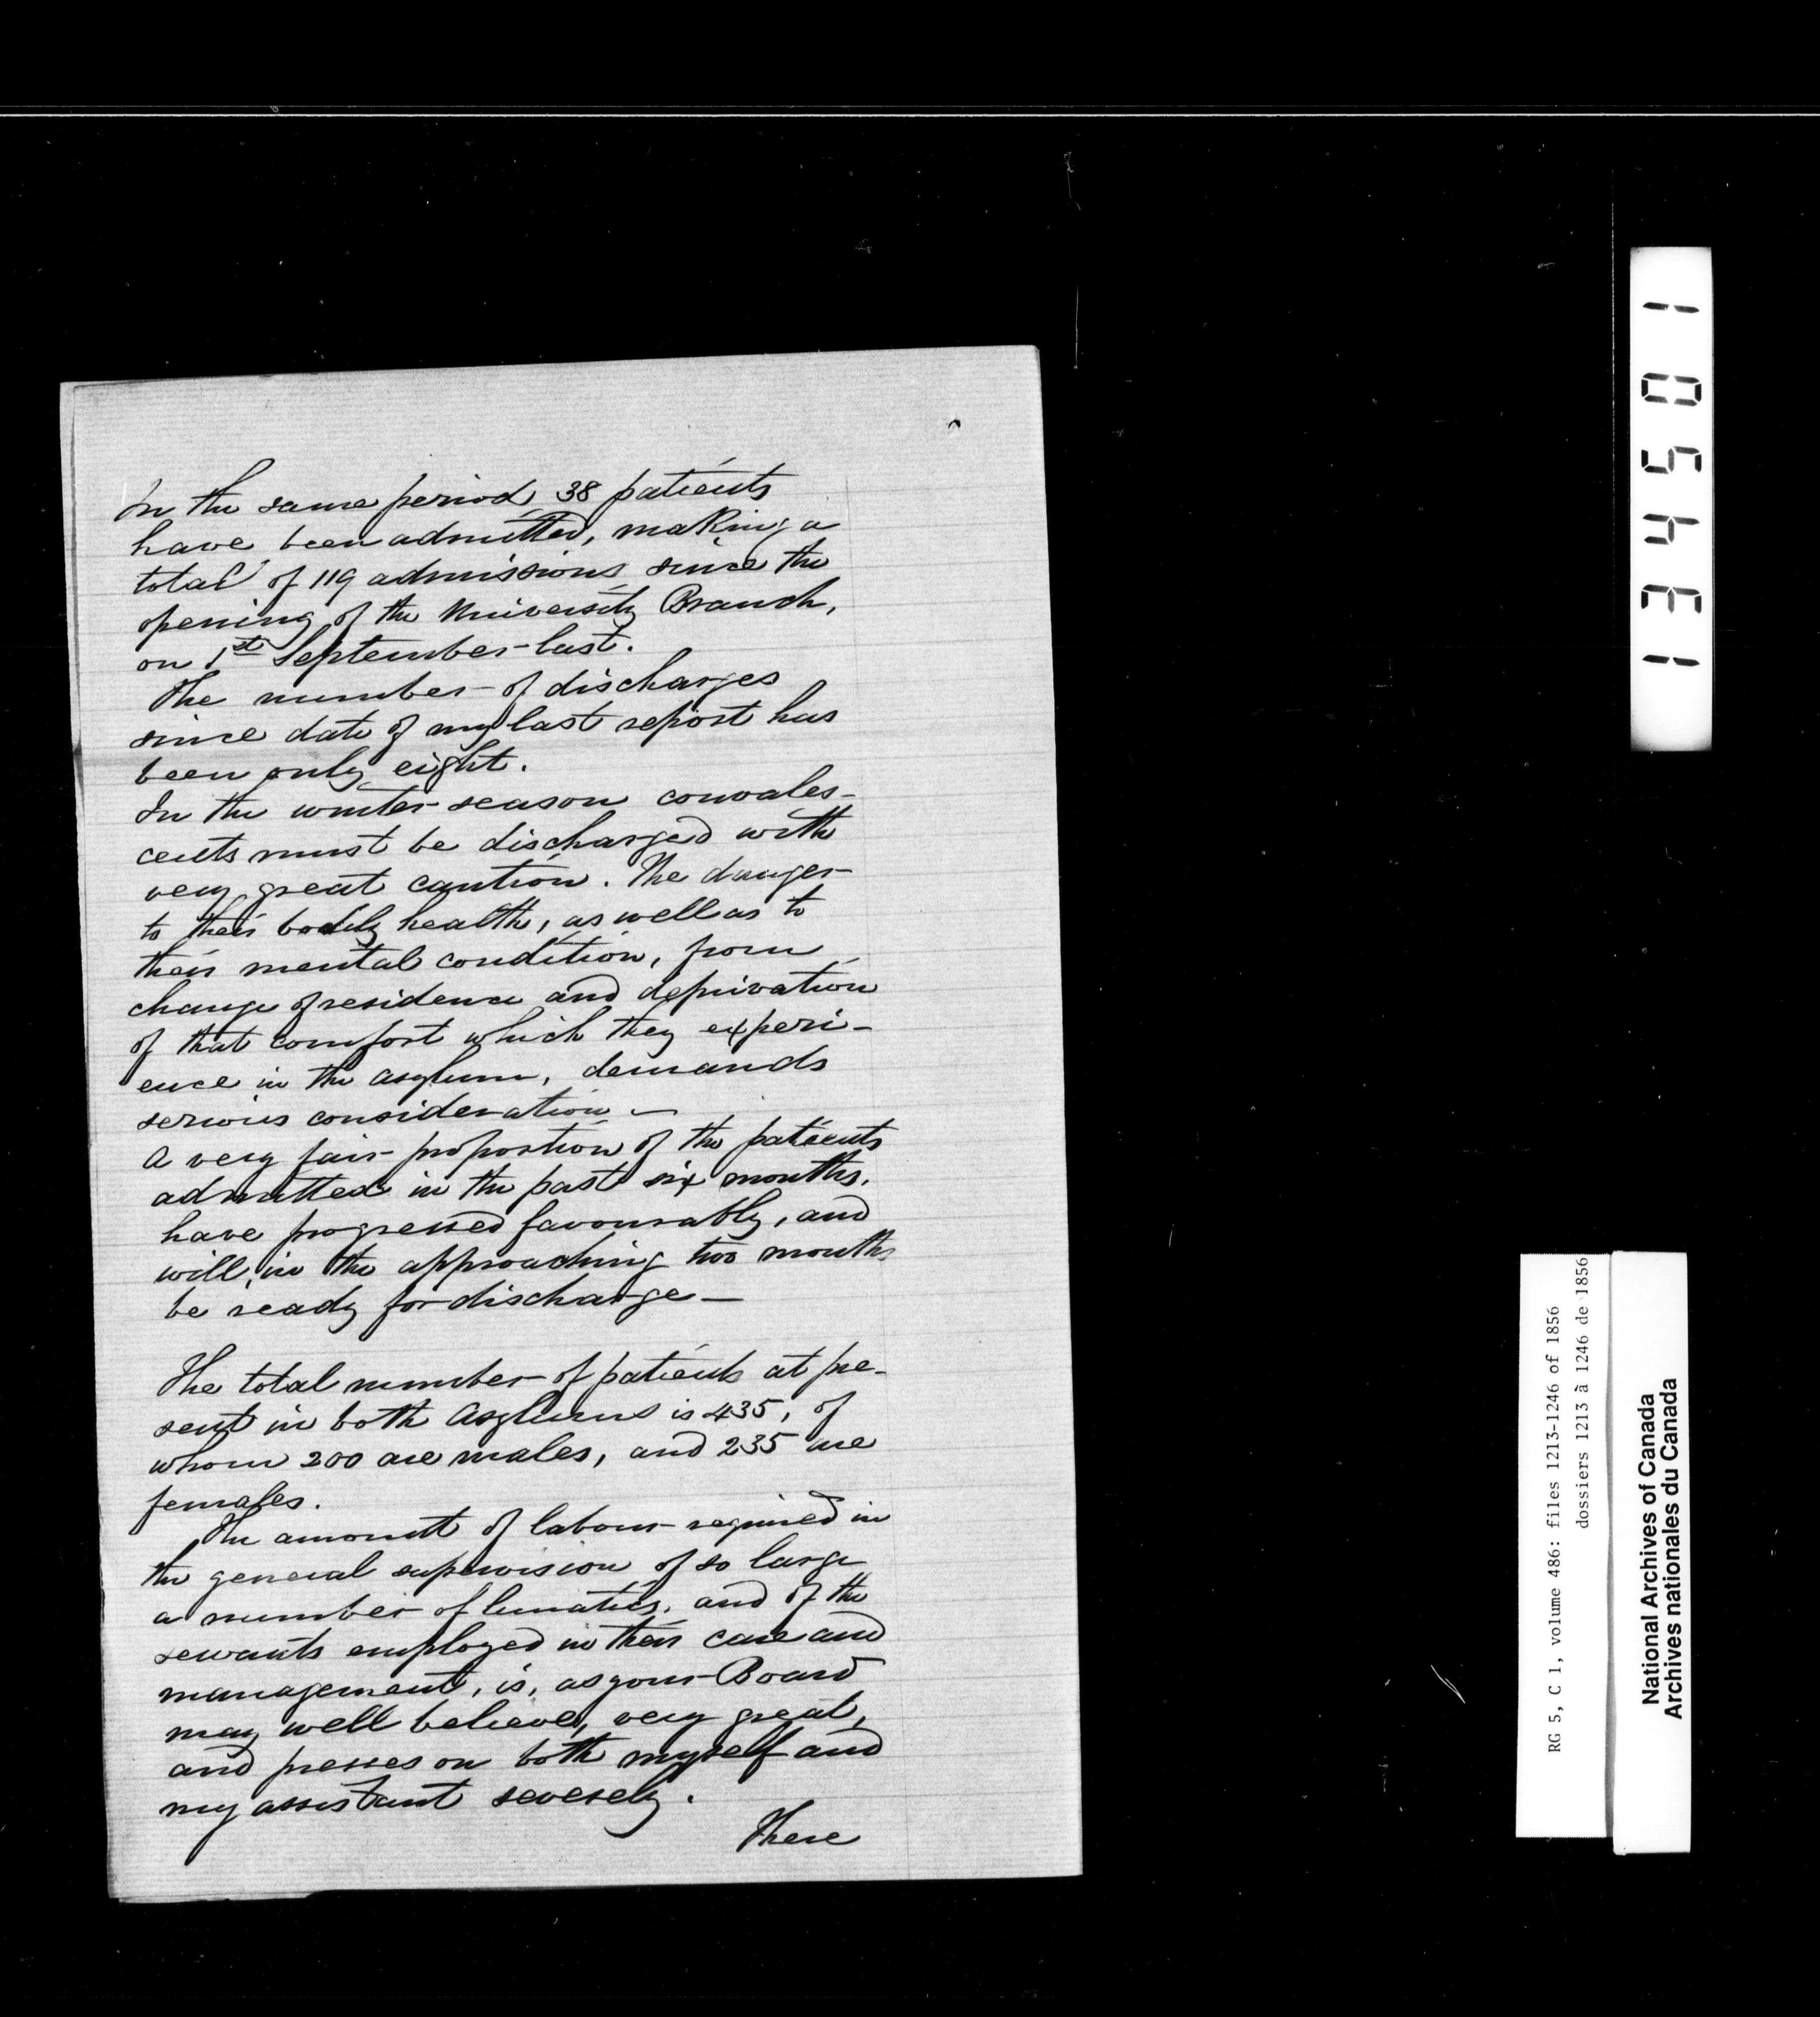 In the same period, 38 patients
have been admitted, making a
total of 119 admissions since the
opening of the University Branch,
on 1st September last.
The number of discharges
since date of my last report has
been only eight.
In the winter season convales-
cents must be discharged with
very great caution. The danger
to their bodily health, as well as to
their mental condition, from
change of residence and deprivation
of that comfort which they experi-
ence in the asylum, demands
serious consideration —
A very fair proportion of the patients
admitted in the past six months,
have progressed favourably, and
will, in the approaching two months
be ready for discharge —
The total number of patients at pre-
sent in both Asylums is 435, of
whom 200 are males, and 235 are
females.
The amount of labour required in
the general supervision of so large
a number of lunatics, and of the
servants employed in their care and
management, is, as your Board
may well believe, very great,
and presses on both myself and
my assistant severely.
There
134501
RG 5, C 1, volume 486: files 1213-1246 of 1856
dossiers 1213 à 1246 de 1856
National Archives of Canada
Archives nationales du Canada